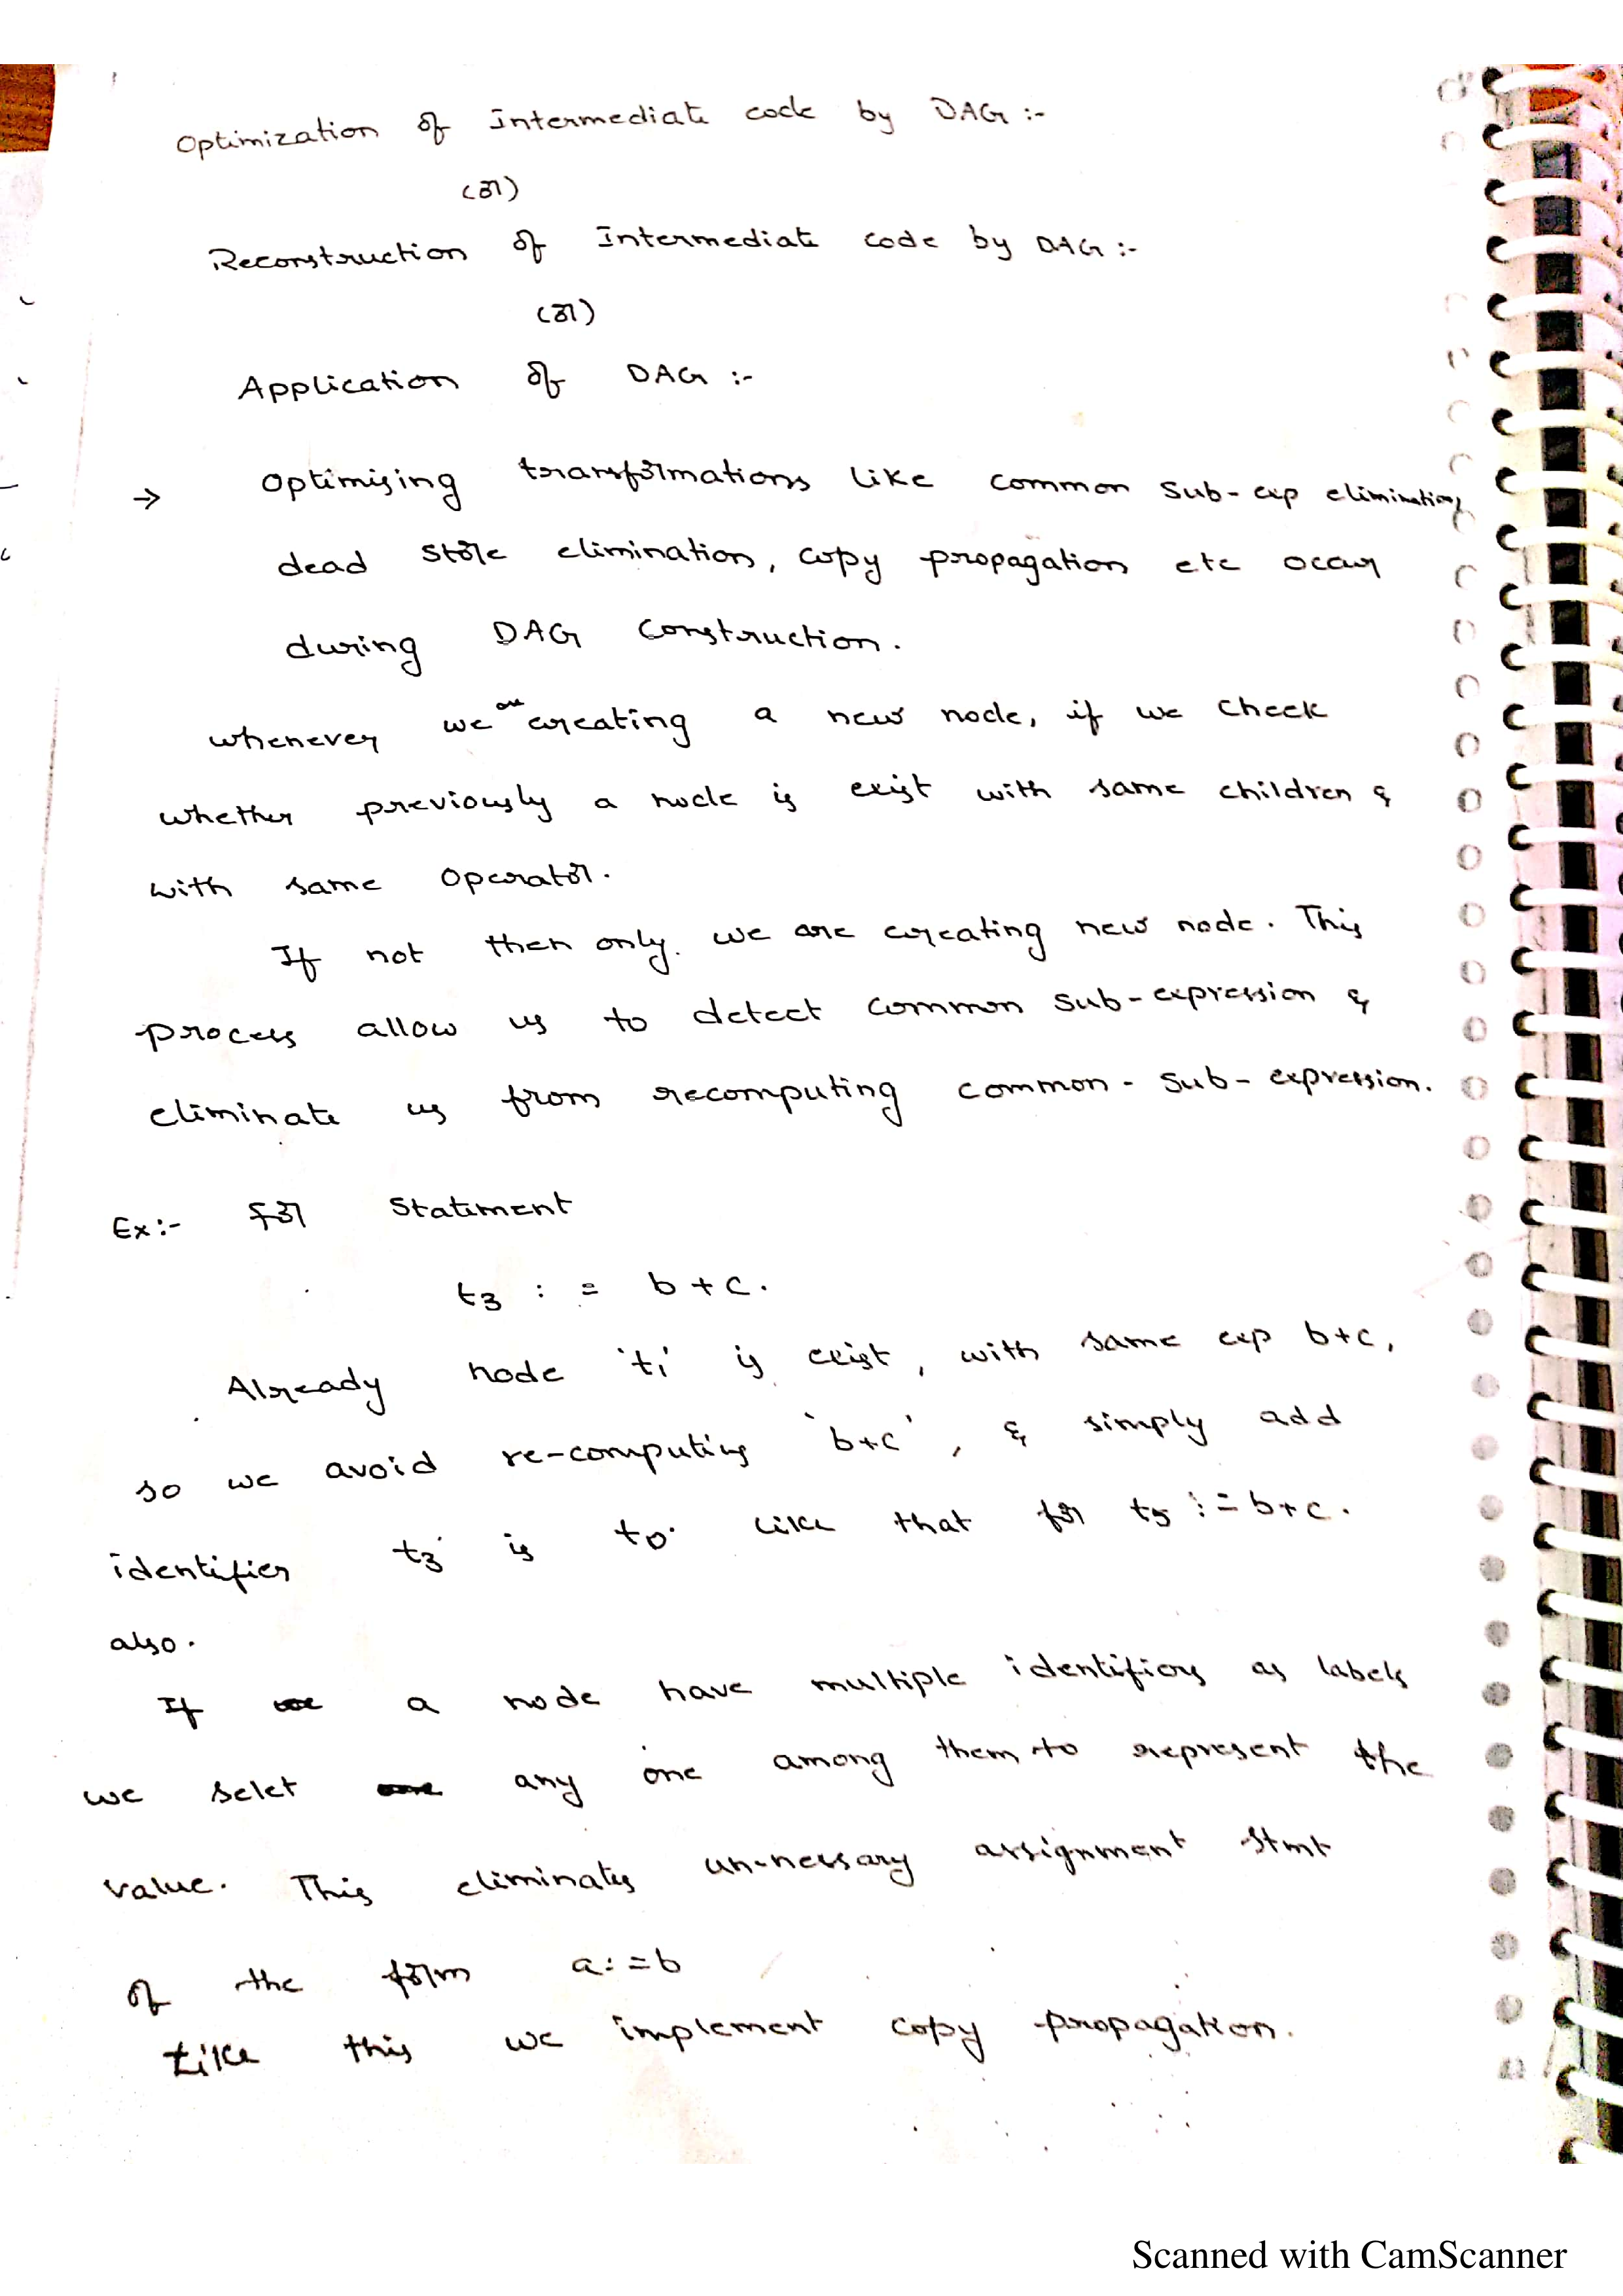 Optimization of Intermediate code by DAG :-
(or)
Reconstruction of Intermediate code by DAG :-
(or)
Application of DAG :-
→ Optimising transformations like common sub-exp elimination,
dead store elimination, copy propagation etc occur
during DAG construction.
whenever we are creating a new node, if we check
whether previously a node is exist with same children &
with same operator.
If not then only. we are creating new node. This
process allow us to detect common sub-expression &
eliminate us from recomputing common - sub - expression.
Ex:- for Statement
t3 : = b + c.
Already node 't1' is exist, with same exp b+c,
so we avoid re-computing 'b+c', & simply add
identifier t3 is to like that for t5 := b+c.
also.
If a node have multiple identifiers as labels
we selet any one among them to represent the
value. This eliminates un-nessary assignment stmt
of the form a:=b
Like this we implement copy propagation.
Scanned with CamScanner